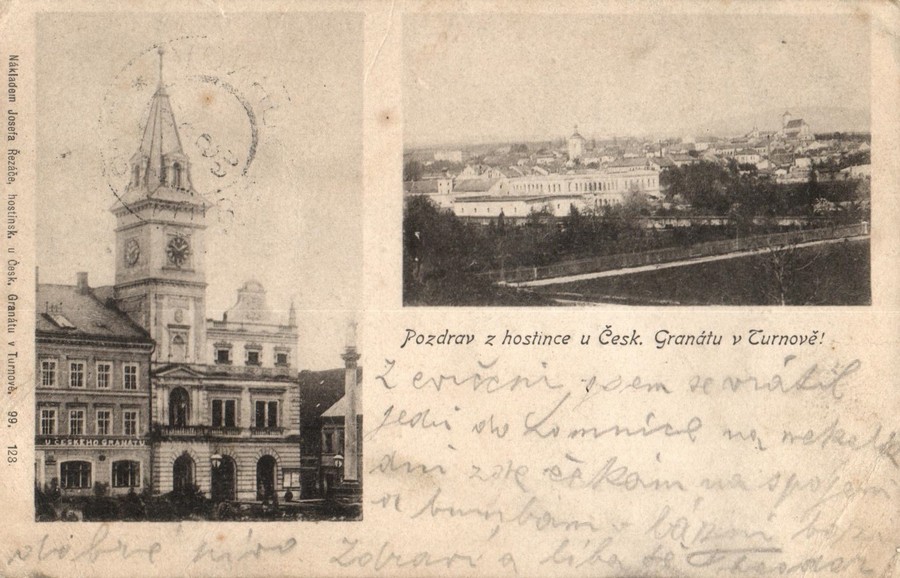 Nákladem Josefa Řezáče, hostinsk. u Česk. Granátu v Turnově. 99. 123
U ČESKÉHO GRANÁTU
Pozdrav z hostince u Česk. Granátu v Turnově!
Z cvičení jsem se vrátil
jedu do Lomnice na
dní zde čekám na spojení
a bumbám
dobré pivo. Zdraví a líbá tě